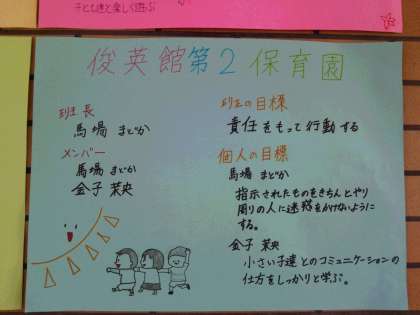 子どもと楽しく遊ぶ
俊英館第2保育園
班長
馬場 まどか
メンバー
馬場 まどか
金子 茉央
班の目標
責任をもって行動する
個人の目標
馬場 まどか
指示されたものをきちんとやり
周りの人に迷惑をかけないように
する。
金子 茉央
小さい子達とのコミュニケーションの
仕方をしっかりと学ぶ。